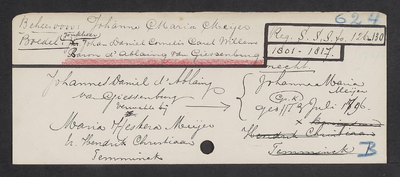 624
Beheer voor: Johanna Maria Meijer
Boedel: Jonkheer Johan Daniel Cornelis Carel Willem
Baron d'Ablaing van Giessenburg
Reg. S. S. S. fo. 126-130
1801-1817.
Johannes Daniel d'Ablaing
van Giessenburg
vermeld bij
Maria Hester Meijer
w. Hendrik Christiaan
Temminck
Johanna Maria
Meijer
geb 17 Juli 1796.
x
Hendrik Christiaan
Temminck
B